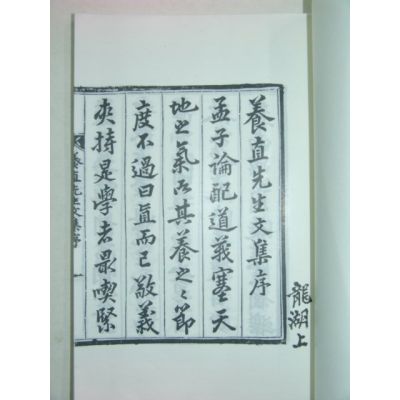 龍湖上
養直先生文集序
孟子論配道義塞天
地之氣而其養之之節
度不過曰直而已敬義
夾持是學者最喫緊
養直先生文集序